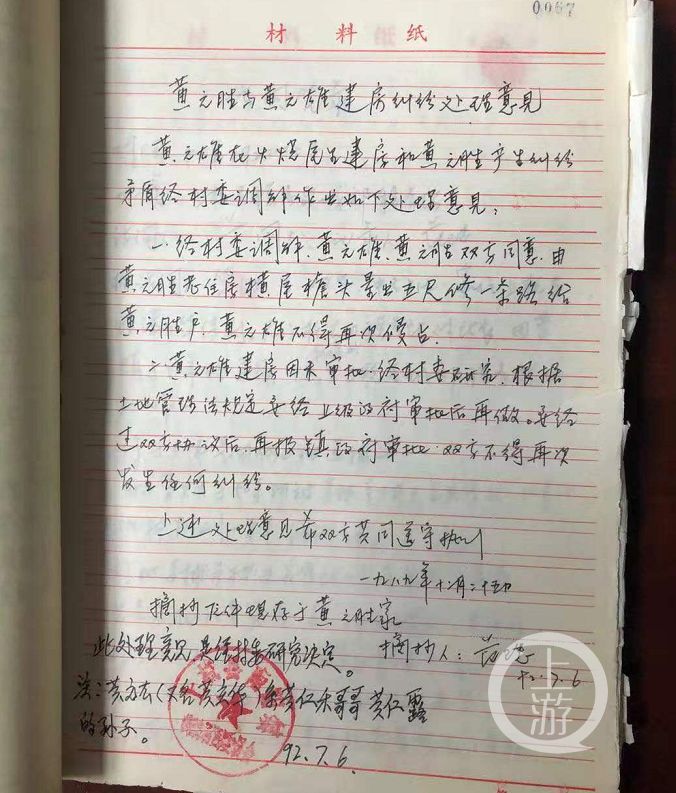 0067
材料纸
黄元胜与黄元雄建房纠纷处理意见
黄元雄在火烧屋生建房和黄元胜产生纠纷
矛盾经村委调解作出如下处理意见：
一、经村委调解，黄元雄、黄元胜双方同意，由
黄元胜老住房横屋檐头量出五尺修一条路给
黄元胜户，黄元雄不得再次侵占。
二、黄元雄建房因未审批，经村委研究，根据
土地管理法规定要经上级政府审批后再做。要经
过双方协议后，再报镇政府审批，双方不得再次
发生任何纠纷。
上述处理意见希双方共同遵守执行
一九八九年十二月二十五日
摘抄 件现存于黄元胜家
此处理意见是经村委研究决定。
摘抄人：
92.7.6
注：黄 （又名黄 ）系黄仁 哥哥黄仁
的孙子。
92.7.6.
上游